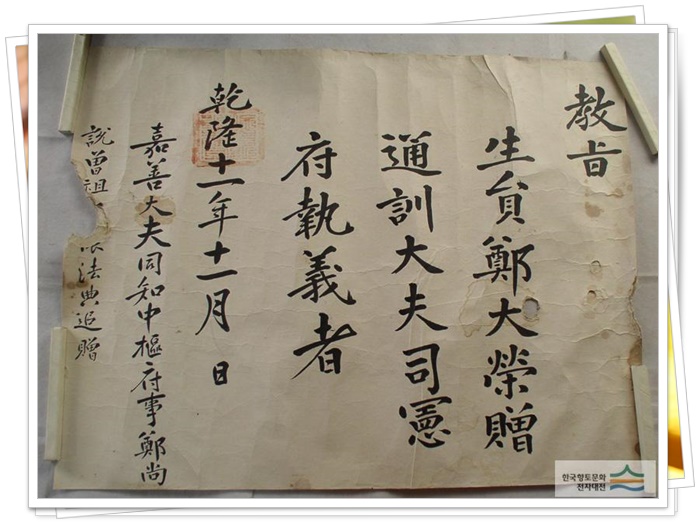 教旨
生貟鄭大榮贈
通訓大夫司憲
府執義者
乾隆十一年十一月 日
嘉善大夫同知中樞府事鄭尚
說曾祖 依法典追贈
한국향토문화
전자대전